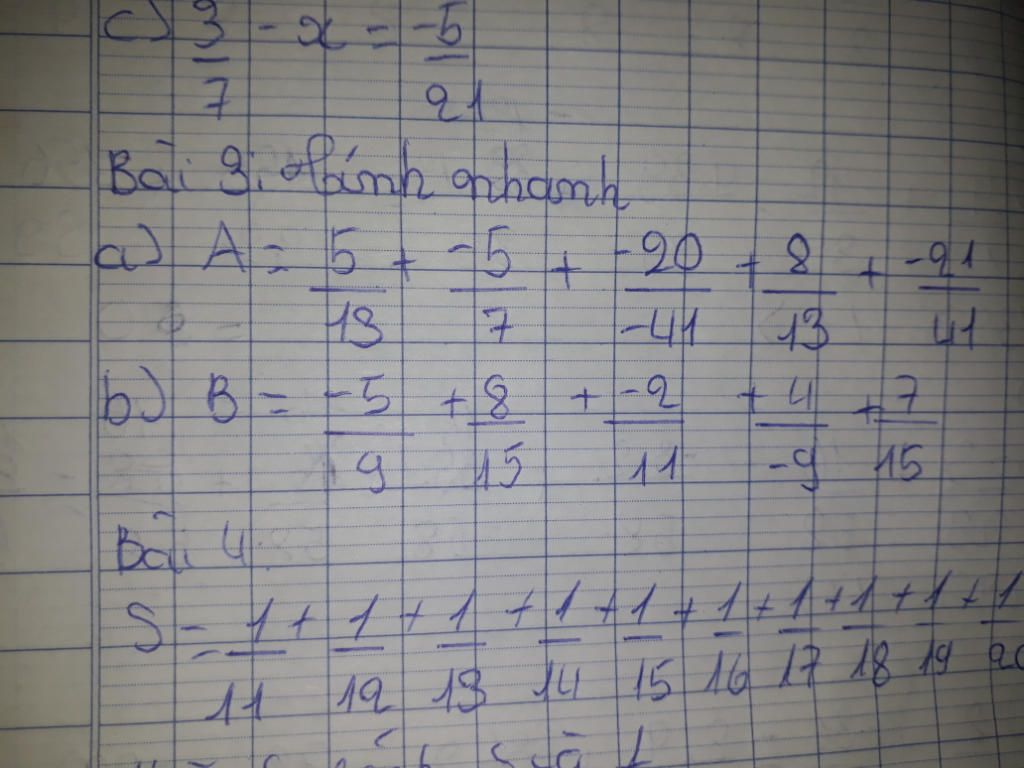 c) 3/7 - x = -5/21
Bài 3: Tính nhanh
a) A = 5/13 + -5/7 + -20/-41 + 8/13 + -21/41
b) B = -5/9 + 8/15 + -2/11 + 4/-9 + 7/15
Bài 4:
S = 1/11 + 1/12 + 1/13 + 1/14 + 1/15 + 1/16 + 1/17 + 1/18 + 1/19 + 1/20